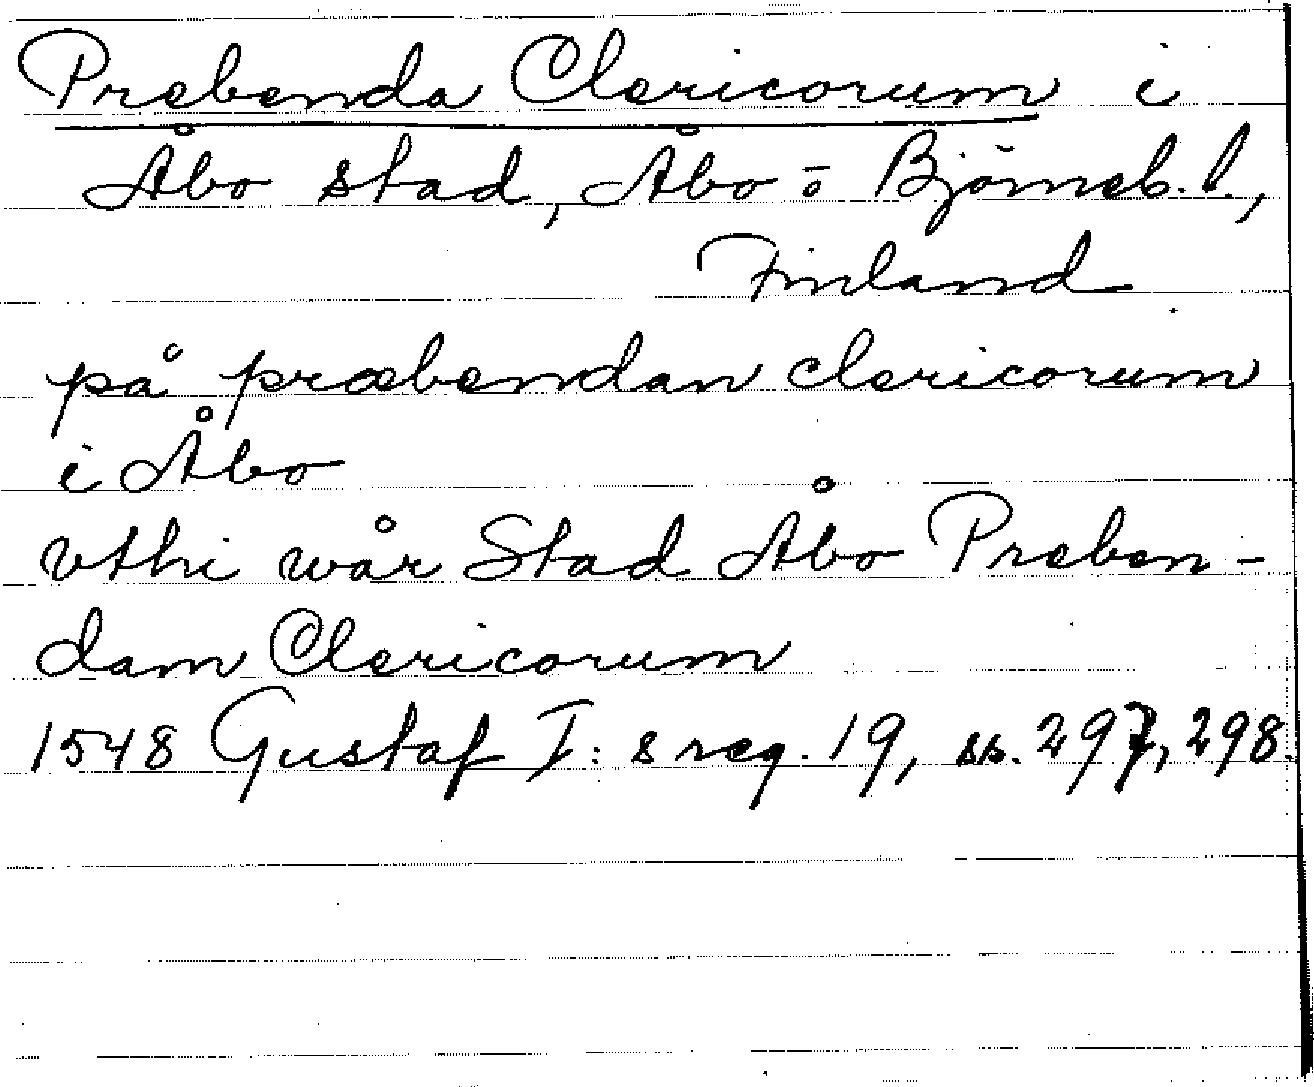 Prebenda Clericorum i
Åbo stad, Åbo o. Björneb. l.,
Finland
på præbendan clericorum
i Åbo
vthi wår Stad Åbo Preben-
dam Clericorum
1548 Gustaf I:s reg. 19, ss. 297, 298.